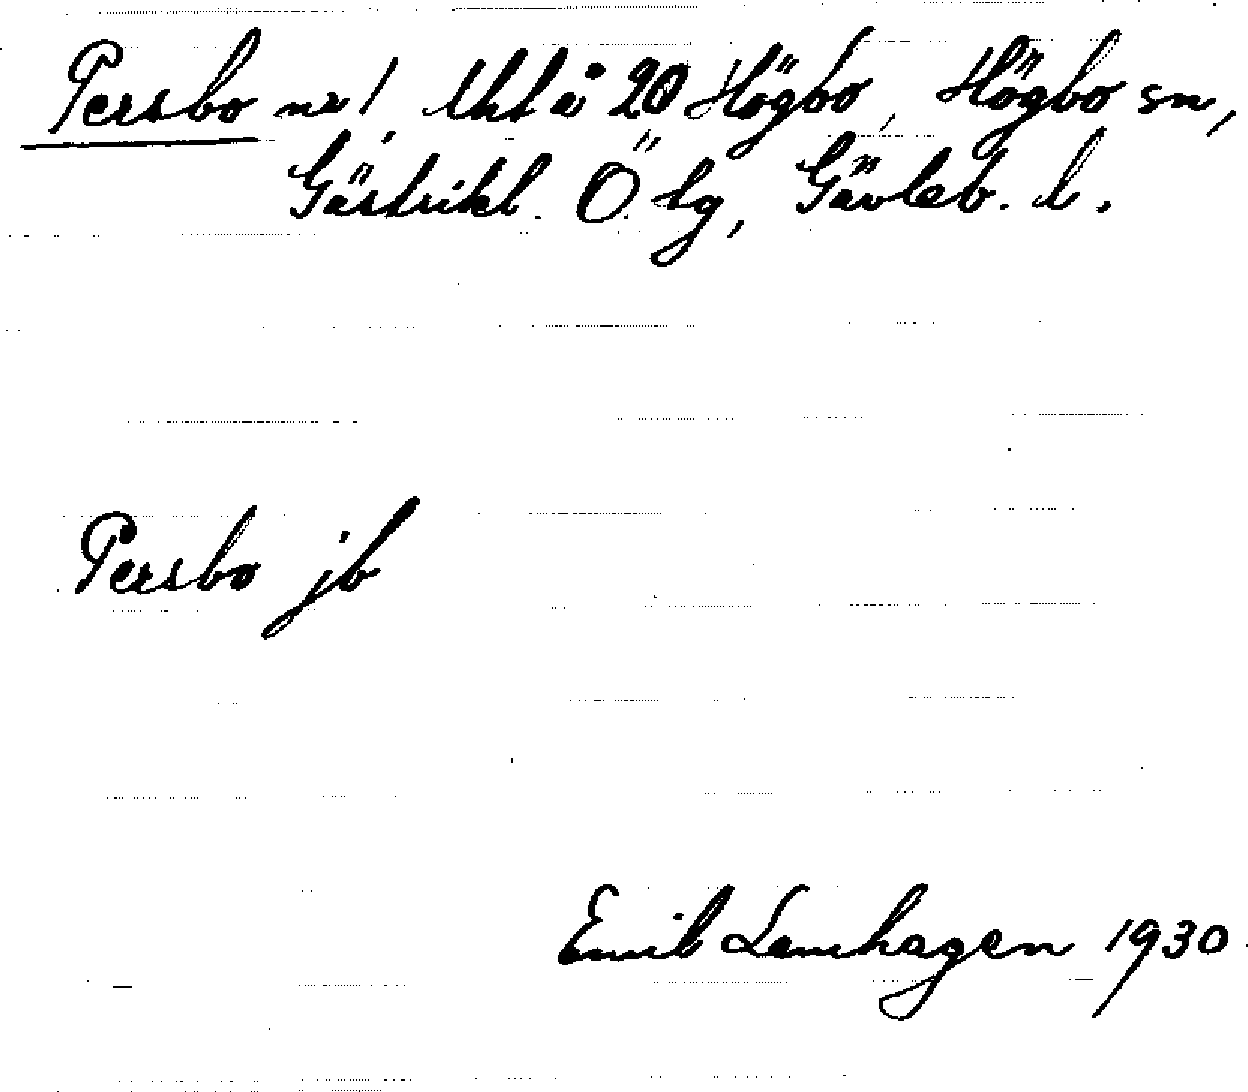 Persbo nr 1, Uhl å 20 Högbo, Högbo sn,
Gästrikl. Ö tg, Gävleb. l.
Persbo jb
Emil Lamhagen 1930